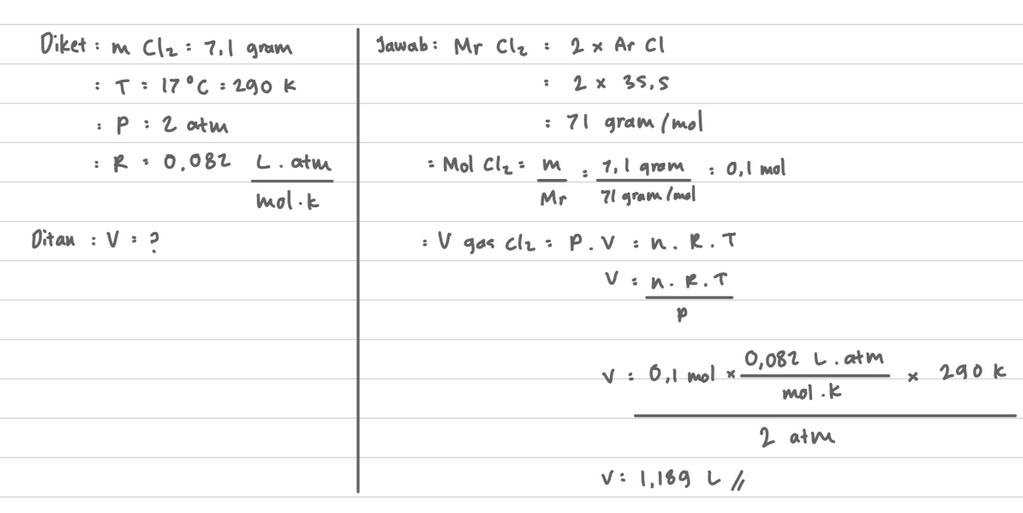 Diket : m Cl2 : 7,1 gram
: T : 17°C : 290 K
: P : 2 atm
: R : 0,082 L . atm
mol . K
Ditan : V : ?
Jawab : Mr Cl2 : 2 × Ar Cl
: 2 × 35,5
: 71 gram/mol
: Mol Cl2 : m : 7,1 gram : 0,1 mol
Mr 71 gram/mol
: V gas Cl2 : P . V : n . R . T
V : n . R . T
P
V : 0,1 mol × 0,082 L . atm × 290 K
mol . K
2 atm
V : 1,189 L //